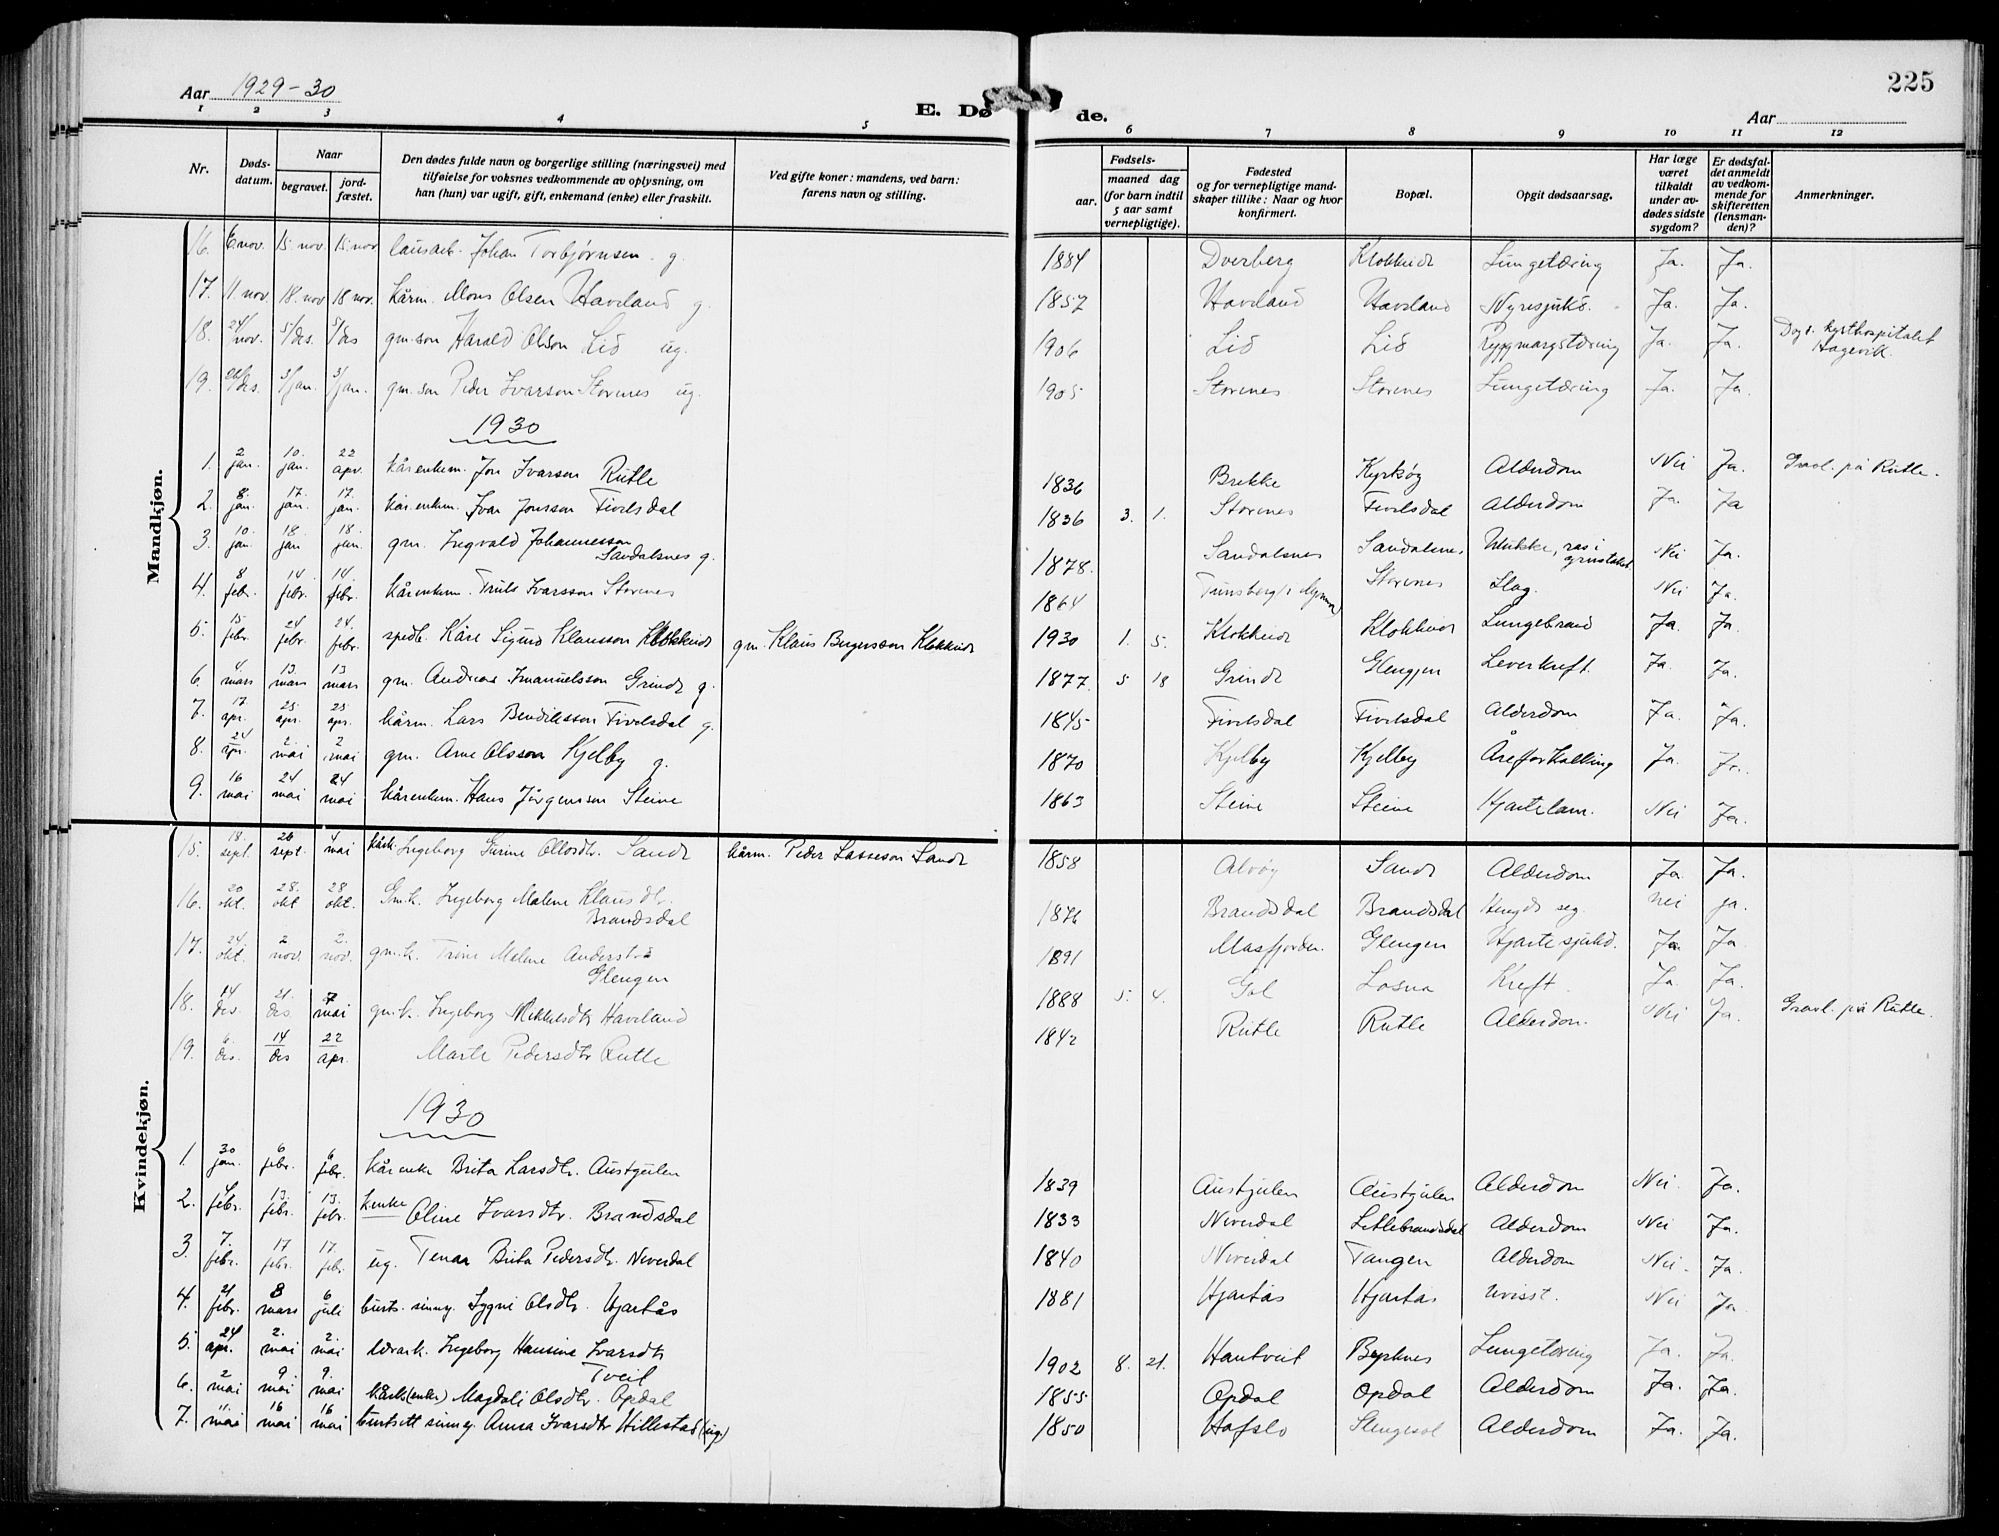 225
Aar 1929-30
E. Døde.
Aar
1 2 3 4 5 6 7 8 9 10 11 12
Nr.
Døds-datum.
Naar
begravet.
jord-fæstet.
Den dødes fulde navn og borgerlige stilling (næringsvei) med
tilføielse for voksnes vedkommende av oplysning, om
han (hun) var ugift, gift, enkemand (enke) eller fraskilt.
Ved gifte koner: mandens, ved barn:
farens navn og stilling.
Fødsels-
aar.
maaned dag
(for barn indtil
5 aar samt
vernepligtige).
Fødested
og for vernepligtige mand-
skaper tillike: Naar og hvor
konfirmert.
Bopæl.
Opgit dødsaarsag.
Har læge
været
tilkaldt
under av-
dødes sidste
sygdom?
Er dødsfal-
det anmeldt
av vedkom-
mende for
skifteretten
(lensman-
den)?
Anmerkninger.
Mandkjøn.
16. 6 nov. 15 nov. 15. nov lausarb. Johan Torbjørnsen g. 1884 Dverberg Klokkeide Lungetæring Ja. Ja.
17. 11 nov. 18. nov 18 nov. kårm. Mons Olsen Haveland g. 1857 Haveland Haveland Nyresjukd. Ja. Ja.
18. 24/nov. 5/des. 5/des gm.son Harald Olson Lid ug. 1906 Lid Lid Ryggmargstæring Ja. Ja. Døys. Kysthospitalet
Hagevik.
19. des. 3/jan. 3/jan. gm. son Peder Ivarson Storenes ug. 1905 Storenes Storenes Lungetæring Ja. Ja.
1930
1. 2 jan. 10. jan. 22 apr. kårenkem. Jon Ivarson Rutle 1836 Brekke Kyrkøy Alderdom Nei Ja. Gravl. på Rutle.
2. 8. jan. 17. jan. 17. jan. kårenkem. Ivar Jonsson Fivelsdal 1836 3. 1. Storenes Fivelsdal Alderdom Ja. Ja
3. 10 jan. 18 jan 18. jan. gm. Ingvald Johannesson
Sandalsnes g. 1878. Sandalsnes Sandalsnes. Ulukke, ras i
grustaket Nei Ja.
4. 8 febr. 14. febr. 14. febr. kårenkem. Truls Ivarsson Storenes 1864 Storenes Slag. Nei Ja.
5. 15 febr. 24 febr. 24. febr. spedb. Kåre Sigurd Klausson Klokkeide gm. Klaus Birgerson Klokkeide 1930 1. 5. Klokkeide Klokkeide Lungebrand Ja. Ja.
6. 4 mars 13. mars 13 mars gm. Andreas Imanuelsson Grinde g. 1877. 5 18 Grinde Glengjen Leverkreft. Ja. Ja.
7. 17 apr. 25. apr. 25 apr. kårm. Lars Bendiksson Fivelsdal g. 1845 Fivelsdal Fivelsdal Alderdom Ja. Ja.
8. 24 apr. 2. mai 2 mai gm. Arne Olsson Kjelby g. 1870 Kjelby Kjelby Åreforkalking Ja. Ja.
9. 16 mai 24 mai 24 mai kårenkem. Hans Jørgensson Steine 1863 Steine Steine Hjartelam. Nei Ja.
Kvindekjøn.
15. 18 sept. 26 sept. 4 mai kårk. Ingeborg Gurine Ollosdtr. Sande kårm. Peder Lasseson Sande 1858 Alvøy Sande Alderdom Ja. Ja.
16. 20 okt. 28. okt 28 okt. Gm.k. Ingeborg Malene Klausdtr.
Brandsdal 1876 Brandsdal Brandsdal Hengde seg. nei ja.
17. 24. okt. 2 nov. 2. nov. gm.k. Trine Malene
Glengen 1891 Masfjorden. Glengen Hjartesjukd. Ja. Ja
18. 14 des. 21. des. 7 mai gm.k. Ingeborg Mikkelsdtr Haveland 1888 5. 4. Gol Losna Kreft. Ja. Ja.
19. 6. des. 14 des 22 apr. Marte Pedersdtr Rutle 1842 Rutle Rutle Alderdom. Nei Ja. Gravl. på Rutle.
1930
1. 30 jan. 6 febr. 6 febr. kårenke Brita Larsdtr. Austgulen 1839 Austgulen Austgulen Alderdom Nei. Ja.
2. 4 febr. 13. febr. 13. febr. kenke Oline Ivarsdtr. Brandsdal 1833 Neverdal Litlebrandsdal Alderdom Nei Ja.
3. 7. febr. 17 febr. 17. febr. ug. Tenar Brita Pedersdtr. Neverdal 1840 Neverdal Tangen Alderdom Nei. Ja.
4. 21 febr. 8 mars 6 juli burts. sinny. Sygni Olsdtr. Hjartås 1881 Hjartås Hjartås uvisst. Nei Ja.
5. 24 apr. 2. mai 2. mai lærark. Ingeborg Hansine Ivarsdtr
Tveit 1902 8. 21. Hantveit Byrknes Lungetæring Ja. Ja.
6. 2 mai 9. mai 9. mai kårk. (enke) Magdali Olsdtr. Opdal 1855 Opdal Opdal Alderdom Ja. Ja.
7. 11. mai 16 mai 16 mai burtsett sinny. Anna Ivarsdtr Hillestad (ug.) 1850 Hafslo Alderdom Ja. Ja.